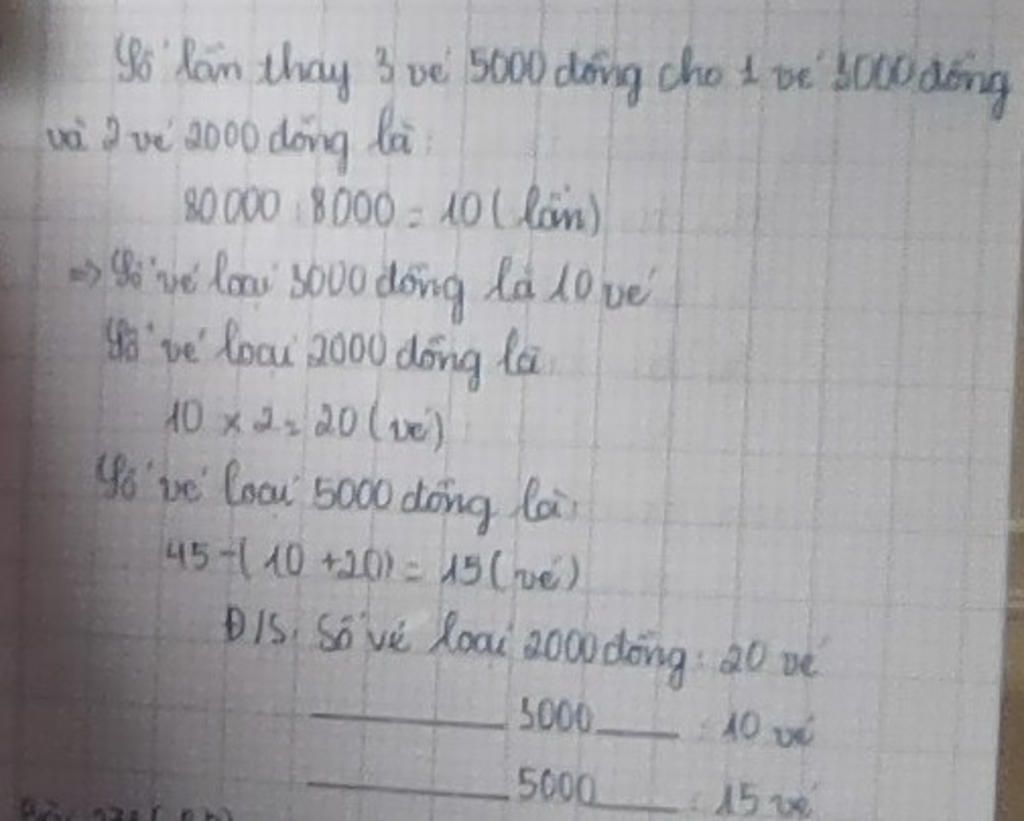 Số lần thay 3 vé 5000 đồng cho 1 vé 3000 đồng
và 2 vé 2000 đồng là:
80000 : 8000 = 10 (lần)
=> Số vé loại 3000 đồng là 10 vé
Số vé loại 2000 đồng là
10 x 2 = 20 (vé)
Số vé loại 5000 đồng là:
45 - (10 + 20) = 15 (vé)
Đ/S: Số vé loại 2000 đồng: 20 vé
3000 : 10 vé
5000 : 15 vé